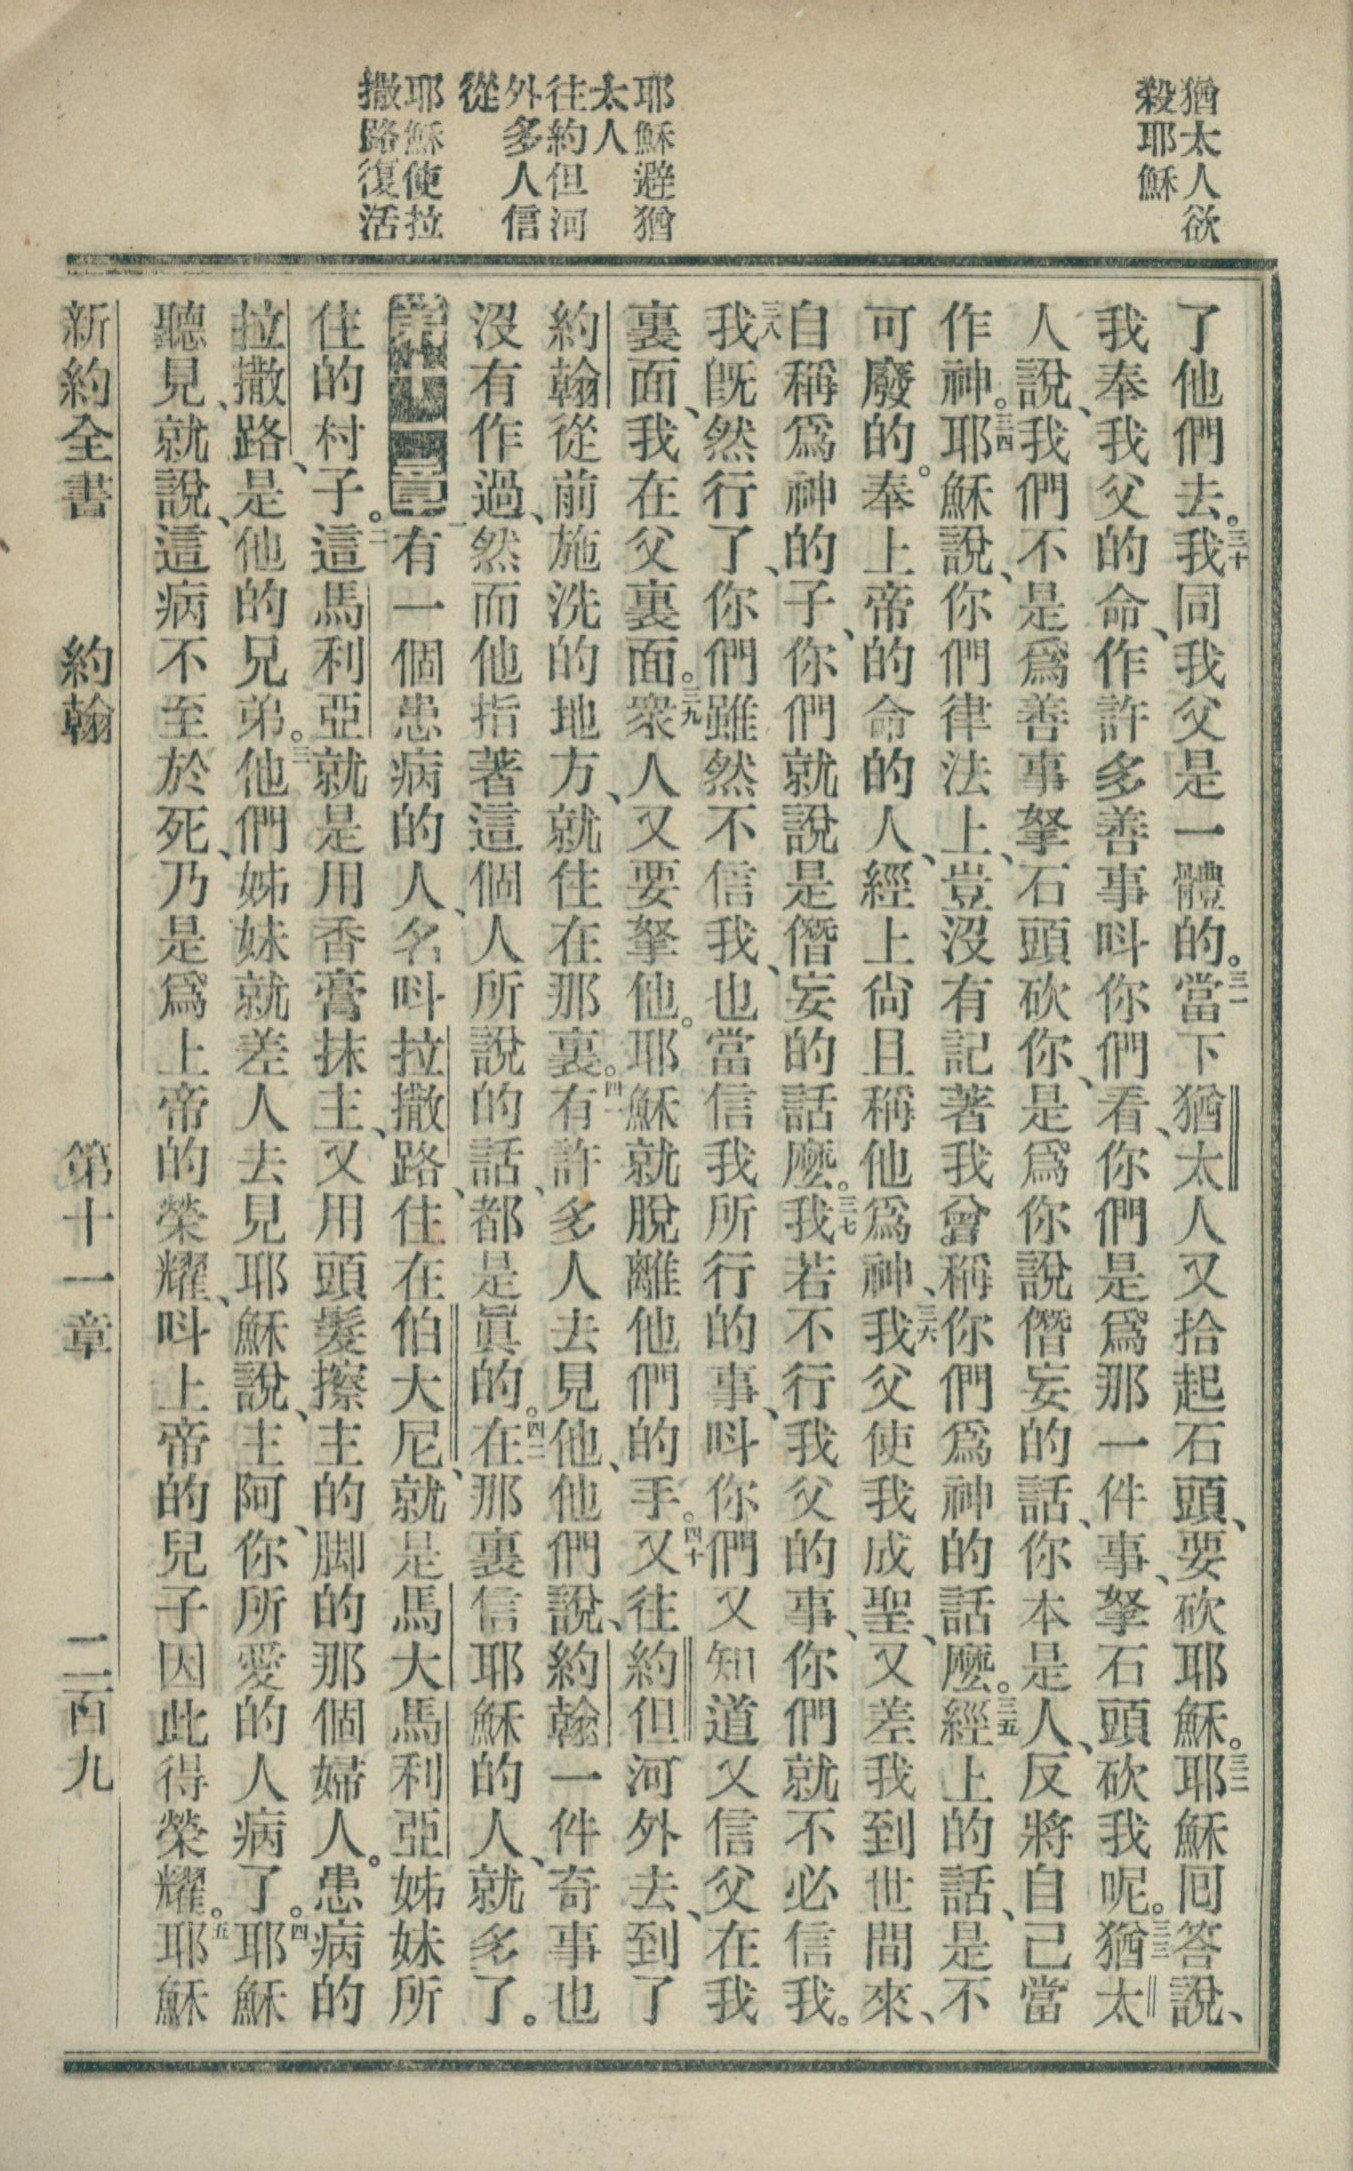 猶太人欲
殺耶穌
耶穌避猶
太人
往約但河
外多人信
從
耶穌使拉
撒路復活
了他們去。三十我同我父是一體的。三一當下猶太人又拾起石頭、要砍耶穌。三二耶穌回答說、
我奉我父的命、作許多善事呌你們看、你們是爲那一件事、拏石頭砍我呢。三三猶太
人說、我們不是爲善事拏石頭砍你、是爲你說僭妄的話、你本是人、反將自己當
作神。三四耶穌說、你們律法上、豈沒有記著我曾稱你們爲神的話麽。三五經上的話、是不
可廢的。奉上帝的命的人、經上尙且稱他爲神、三六我父使我成聖、又差我到世間來、
自稱爲神的子、你們就說是僭妄的話麽。三七我若不行我父的事、你們就不必信我。
三八我旣然行了、你們雖然不信我、也當信我所行的事、呌你們又知道又信父在我
裏面、我在父裏面。三九衆人又要拏他。耶穌就脫離他們的手。四十又往約但河外去、到了
約翰從前施洗的地方、就住在那裏。四一有許多人去見他、他們說、約翰一件奇事也
沒有作過、然而他指著這個人所說的話、都是眞的。四二在那裏信耶穌的人、就多了。
第十一章 一有一個患病的人、名呌拉撒路、住在伯大尼、就是馬大馬利亞姊妹所
住的村子。二這馬利亞就是用香膏抹主、又用頭髮擦主的脚的那個婦人。患病的
拉撒路、是他的兄弟。三他們姊妹就差人去見耶穌說、主阿、你所愛的人病了。四耶穌
聽見就說、這病不至於死、乃是爲上帝的榮耀、呌上帝的兒子因此得榮耀。五耶穌
新約全書 約翰 第十一章 二百九